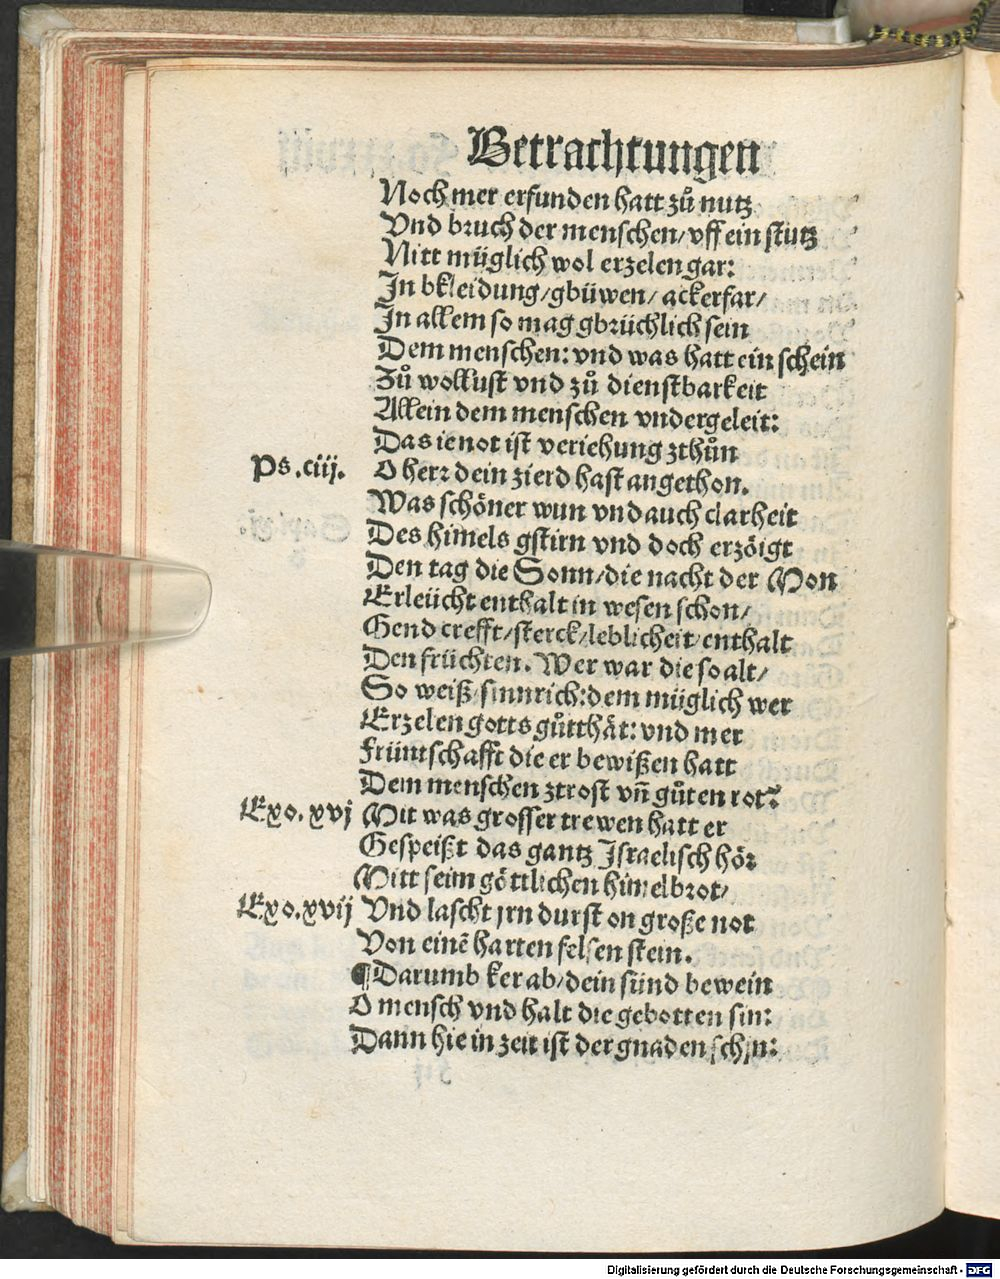 Betrachtungen
Noch mer erfunden hatt zů nutz
Vnd bruch der menschen/vff ein stutz
Nitt müglich wol erzelen gar:
In bkleidung/gbüwen/ ackerfar/
In allem so mag gbrüchlich sein
Dem menschen: vnd was hatt ein schein
Zů wollust vnd zů dienstbarkeit
Allein dem menschen vndergeleit:
Das ie not ist veriehung zthůn
Ps.ciij. O herr dein zierd hast angethon.
Was schöner wun vnd auch clarheit
Des himels gstirn vnd doch erzöigt
Den tag die Sonn/die nacht der Mon
Erleücht enthalt in wesen schon/
Gend crefft/sterck/leblicheit/enthalt
Den früchten. Wer war die so alt/
So weiß/sinnrich:dem müglich wer
Erzelen gotts gůtthät: vnd mer
Früntschafft die er bewißen hatt
Dem menschen ztrost vñ gůten rot?
Exo.xvj Mit was grosser trewen hatt er
Gespeißt das gantz Israelisch hör
Mitt seim göttlichen himelbrot/
Exo.xvij Vnd lascht jrn durst on große not
Von einē harten felsen stein.
¶Darumb ker ab/dein sünd bewein
O mensch vnd halt die gebotten sin:
Dann hie in zeit ist der gnaden schjn:
Digitalisierung gefördert durch die Deutsche Forschungsgemeinschaft - DFG